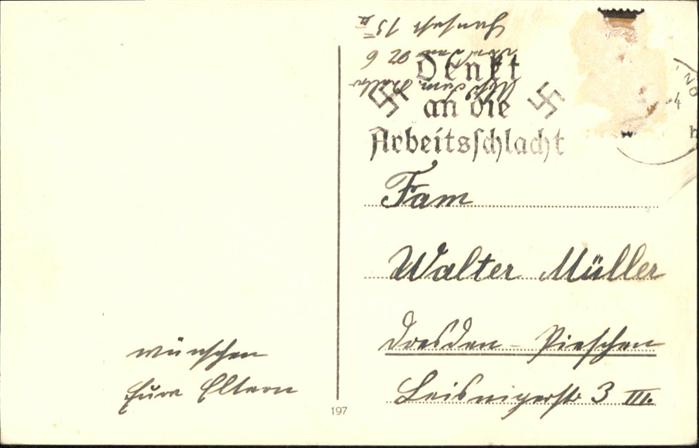 Denkt
an die
Arbeitsschlacht
Fam
Walter Müller
Dresden - Pieschen
Leisnigerstr 3 III.
wünschen
Eure Eltern
197